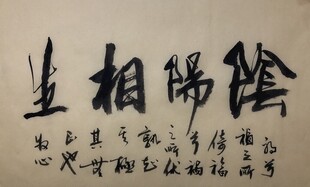 陰陽相生
祸兮
福之所
倚福
兮祸
之所伏
孰知
其極
其無
正也
牧心